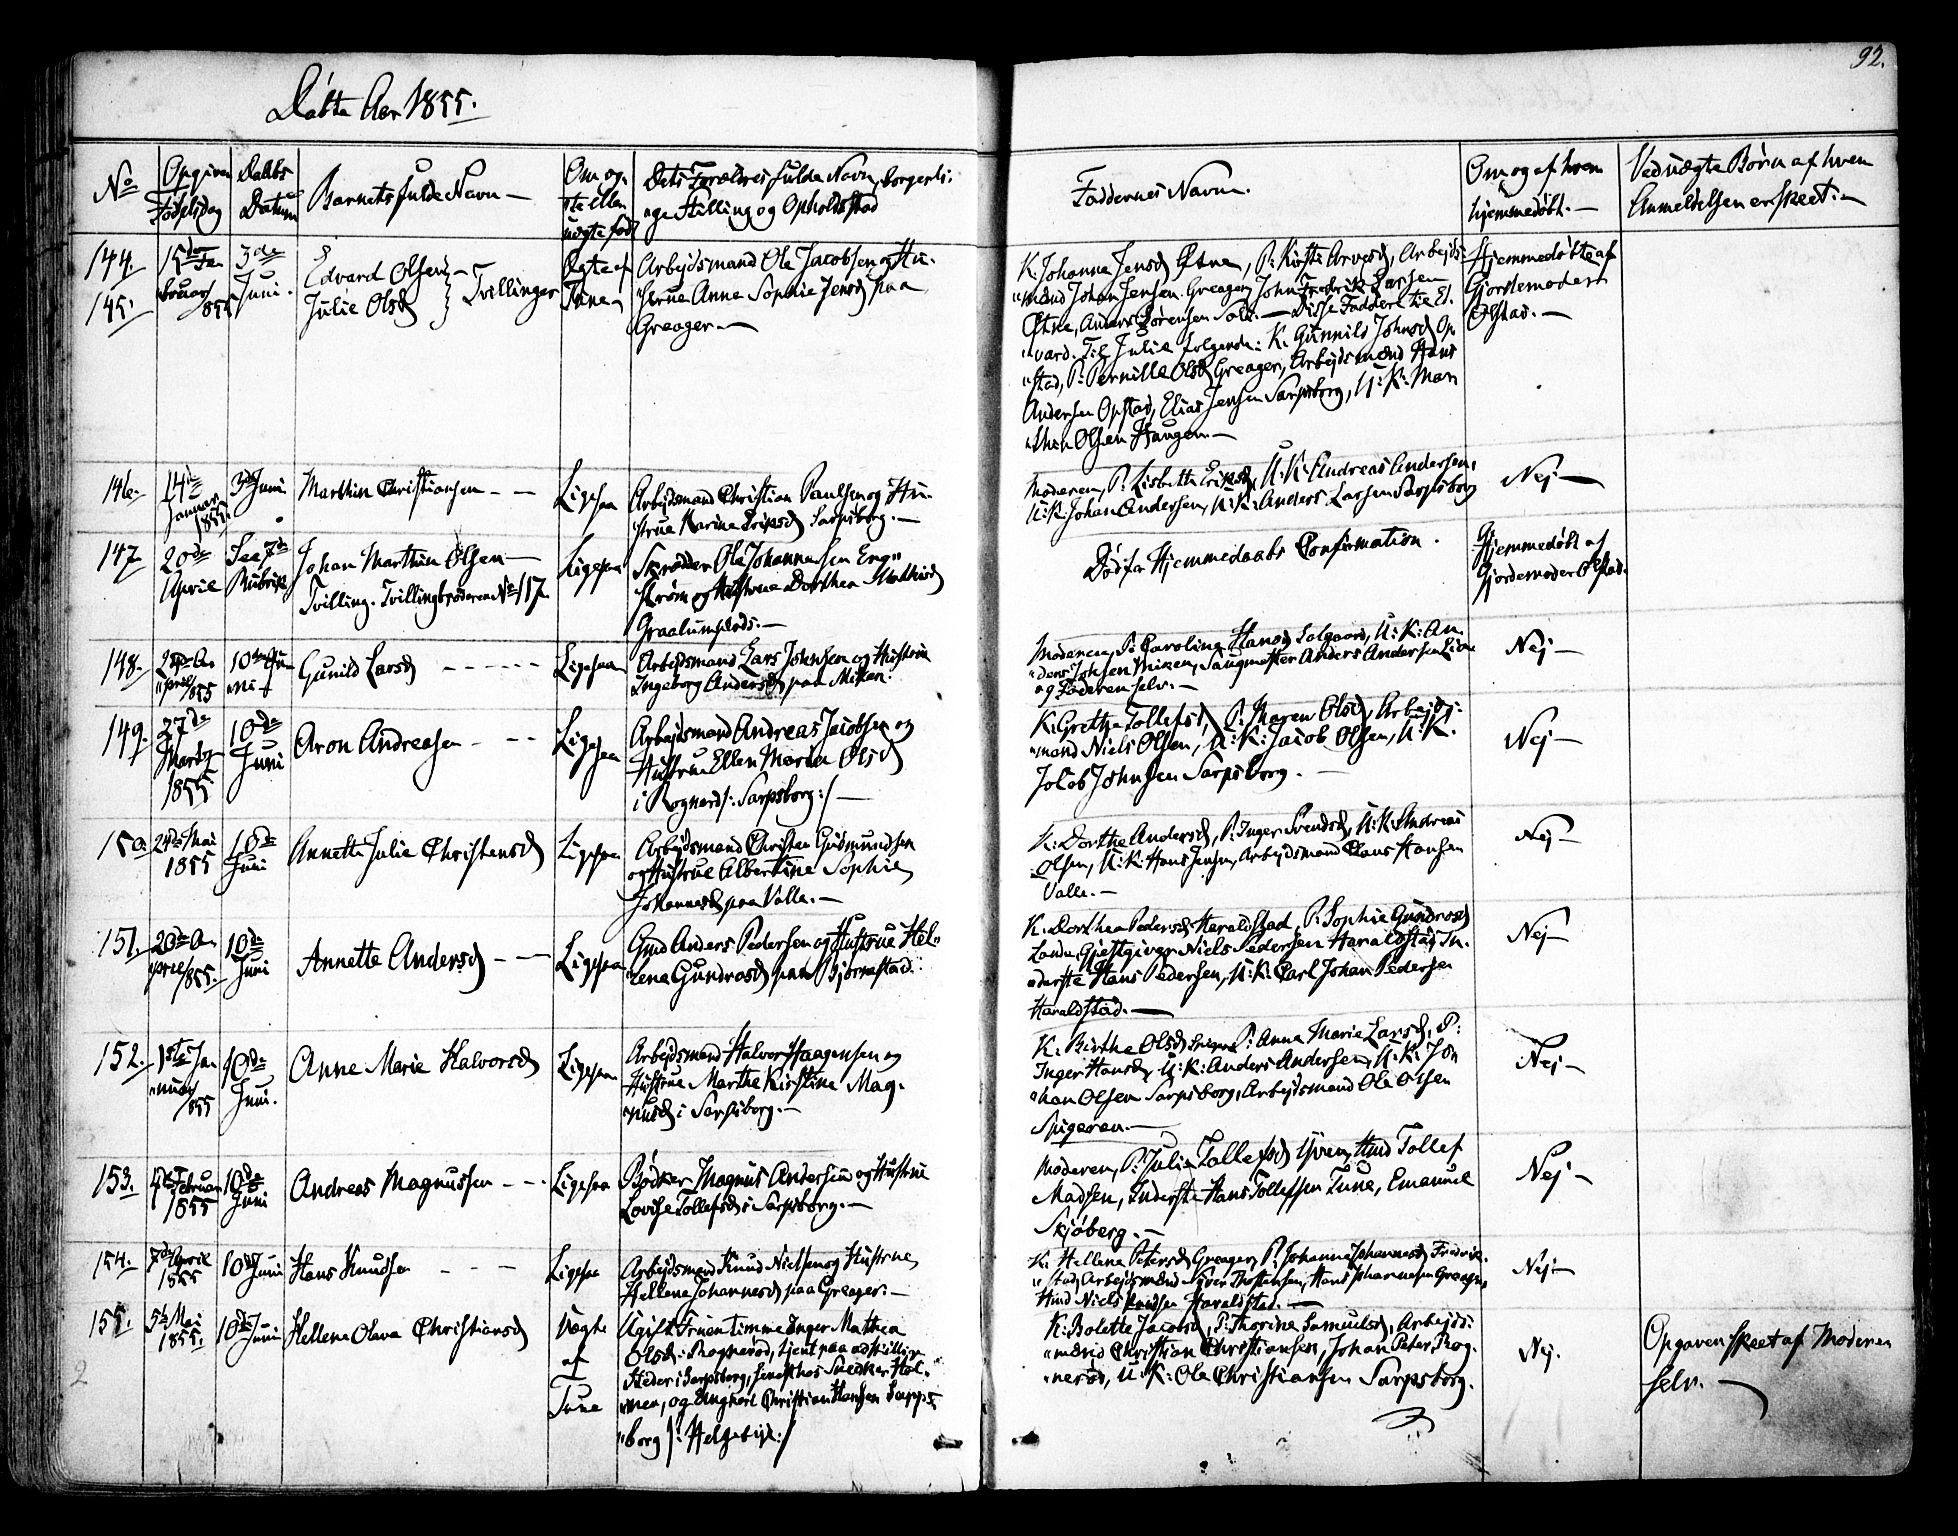 92.
Døbte Aar 1855.
No
Opgiven
Fødselsdag
Daabs
Datum
Barnets fulde Navn —
Om og-
ste eller
uægte født
Dets Forældres fulde Navn, borgerli-
ge Stilling og Opholdsstad
Faddernes Navne.
Om og af hvem
hjemmedøbt. —
Ved uægte Børn af hvem
Anmeldelsen er skeet. —
144.
145.
15de Fe-
bruar
1855
3die
Juni.
Edvard Olsen —
Julie Olsd
} Tvillinger
Ægte af
Tune —
Arbejdsmand Ole Jacobsen og Hu-
strue Anne Sophie Jensd paa
Greager. —
K. Johanne Jensd Østne, P: Kirsti Arvesd, Arbejds-
mænd Johan Jensen Greager, John Fredrik Larsen
Østne, Anders Sørensen Solli. — Disse Faddere til Ed-
vard. Til Julie følgende: K. Gunnild Johnsd Op-
stad, P: Pernille Olsd Greager, Arbejdsmænd Hans
Andersen Opstad, Elias Jensen Sarpsborg, U: K: Mar-
thin Olsen Haugen —
Hjemmedøbte af
Gjordemoder
Olstad. —
146.
14de
Januar
1855.
3die Juni
Marthin Christiansen - - -
Ligesaa
Arbejdsmand Christian Paulsen og Hu-
strue Karine Eriksd Sarpsborg. —
Moderen, P: Lisbeth Eriksd, U: K: Andreas Andersen,
U: K: Johan Andersen, U: K: Anders Larsen Sarpsborg
Nej —
147
20de
April
See 7de
Rubrik
Johan Marthin Olsen —
Tvilling. Tvillingbroderen No 117
Ligesaa
Skrædder Ole Johannesen Eng-
strøm og Hustrue Dorthea Mathisd
Graalumseids. —
Død før Hjemmedaabs Confirmation.
Hjemmedøbt af
Gjordemoder Olstad.
148.
April
1855
10de Ju-
ni —
Gunild Larsd - - - - -
Ligesaa
Arbejdsmand Lars Johnsen og Hustrue
Ingeborg Andersd paa Miken.
Moderen, P: Caroline Hansd Solgaard, U: K: An-
ders Johnsen Miken, Saugmester Anders Andersen Lie
og Faderen selv. —
Nej —
149.
27de
Marts
1855
10de
Juni
Aron Andreasen - - -
Ligesaa
Arbejdsmand Andreas Jacobsen og
Hustrue Ellen Maria Olsd
i Rognerød /: Sarpsborg :/ —
K: Grethe Tollefsd, P: Maren Olsd, Arbejds-
mand Niels Olsen, U: K: Jacob Olsen, U: K:
Jacob Johnsen Sarpsborg. —
Nej —
150
24de Mai
1855
10de
Juni
Annette Julie Christensd
Ligesaa
Arbejdsmand Christen Gudmundsen
og Hustrue Albertine Sophie
Johannesd paa Valle. —
K: Dorthe Andersd, P: Inger Svendsd, U: K: Andreas
Olsen, U: K: Hans Jensen, Arbejdsmand Claus Hansen
Valle. —
Nej —
151.
20de A-
pril
1855.
10de
Juni
Annette Andersd - - -
Ligesaa
Gmd Anders Pedersen og Hustrue Hel-
lena Gundrosd paa Bjørnstad.
K: Dorthea Pedersd Haraldstad, P: Sophie Gundrosd
Lande, Gjæstgiver Niels Pedersen Haraldstad, In-
derste Hans Pedersen, U: K: Carl Johan Pedersen
Haraldstad. —
Nej —
152.
1ste Ja-
nuar
1855
10de
Juni.
Anne Marie Halvorsd
Ligesaa
Arbejdsmand Halvor Haagensen og
Hustrue Marthe Kirstine Mag-
nusd i Sarpsborg. —
K: Birthe Olsd P: Anna Marie Larsd, P:
Inger Hansd, U: K: Anders Andersen, U: K: Jo-
han Olsen Sarpsborg, Arbejdsmand Ole Olsen
Spigeren. —
Nej —
153.
Februar
1855
10de
Juni
Andreas Magnussen - - -
Ligesaa
Bødker Magnus Andersen og Hustrue
Lovise Tollefsd i Sarpsborg. —
Moderen, P: Julie Tollefsd Yven, Gmd Tollef
Madsen, Inderste Hans Tollefsen Tune, Emanuel
Skjöberg. —
Nej —
154.
7de April
1855
10de Juni
Hans Knudsen - - -
Ligesaa
Arbejdsmand Knud Nielsen og Hustrue
Hellene Johannesd paa Greager. —
K: Hellene Petersd Greager, P: Johanne Johannesd Fredrik-
stad, Arbejdsmænd Syver Thostensen, Hans Johannesen Greager,
Gmd Niels Knudsen Haraldstad. —
Nej —
155.
5te Mai
1855.
10de Juni
Hellene Olava Christiansd
Uægte
af
Tune
Ugift Fruentimme Inger Mathea
Olsd i Rognerød, tjent paa adskillige
Steder i Sarpsborg, senest hos Snedker Hol-
men, og Ungkarl Christian Hansen Sarps-
borg /: Helgeby :/
K: Bolette Jacobsd, P: Thorine Samuelsd, Arbejds-
mænd Christian Christiansen, Johan Peter Rog-
nerød, U: K: Ole Christiansen Sarpsborg.
Nej.
Opgaven skeet af Moderen
selv. —
2